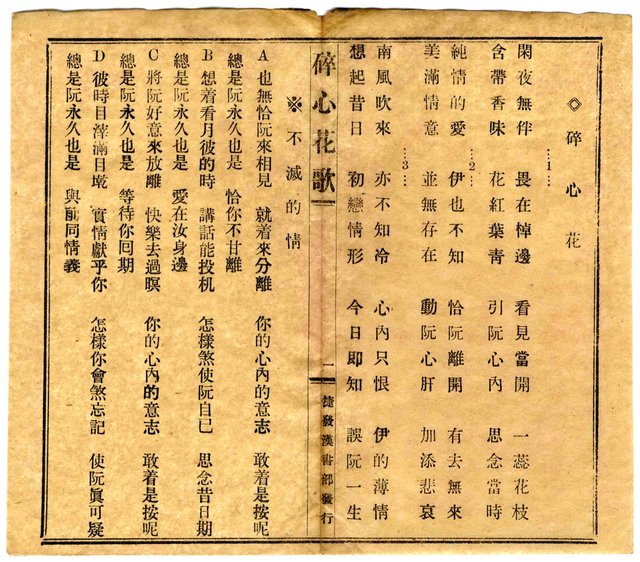 ◇ 碎心花
…1…
閑夜無伴 畏在棹邊 看見當開 一蕊花枝
含帶香味 花紅葉青 引阮心內 思念當時
…2…
純情的愛 伊也不知 恰阮離開 有去無來
美滿情意 並無存在 動阮心肝 加添悲哀
…3…
南風吹來 亦不知冷 心內只恨 伊的薄情
想起昔日 初戀情形 今日即知 誤阮一生
碎心花歌 一 捷發漢書部發行
※ 不滅的情
A 也無恰阮來相見 就着來分離 你的心內的意志 敢着是按呢
總是阮永久也是 恰你不甘離
B 想着看月彼的時 講話能投机 怎樣煞使阮自已 思念昔日期
總是阮永久也是 愛在汝身邊
C 將阮好意來放離 快樂去過暝 你的心內的意志 敢着是按呢
總是阮永久也是 等待你囘期
D 彼時目滓滿目墘 實情獻乎你 怎樣你會煞忘記 使阮眞可疑
總是阮永久也是 與前同情義